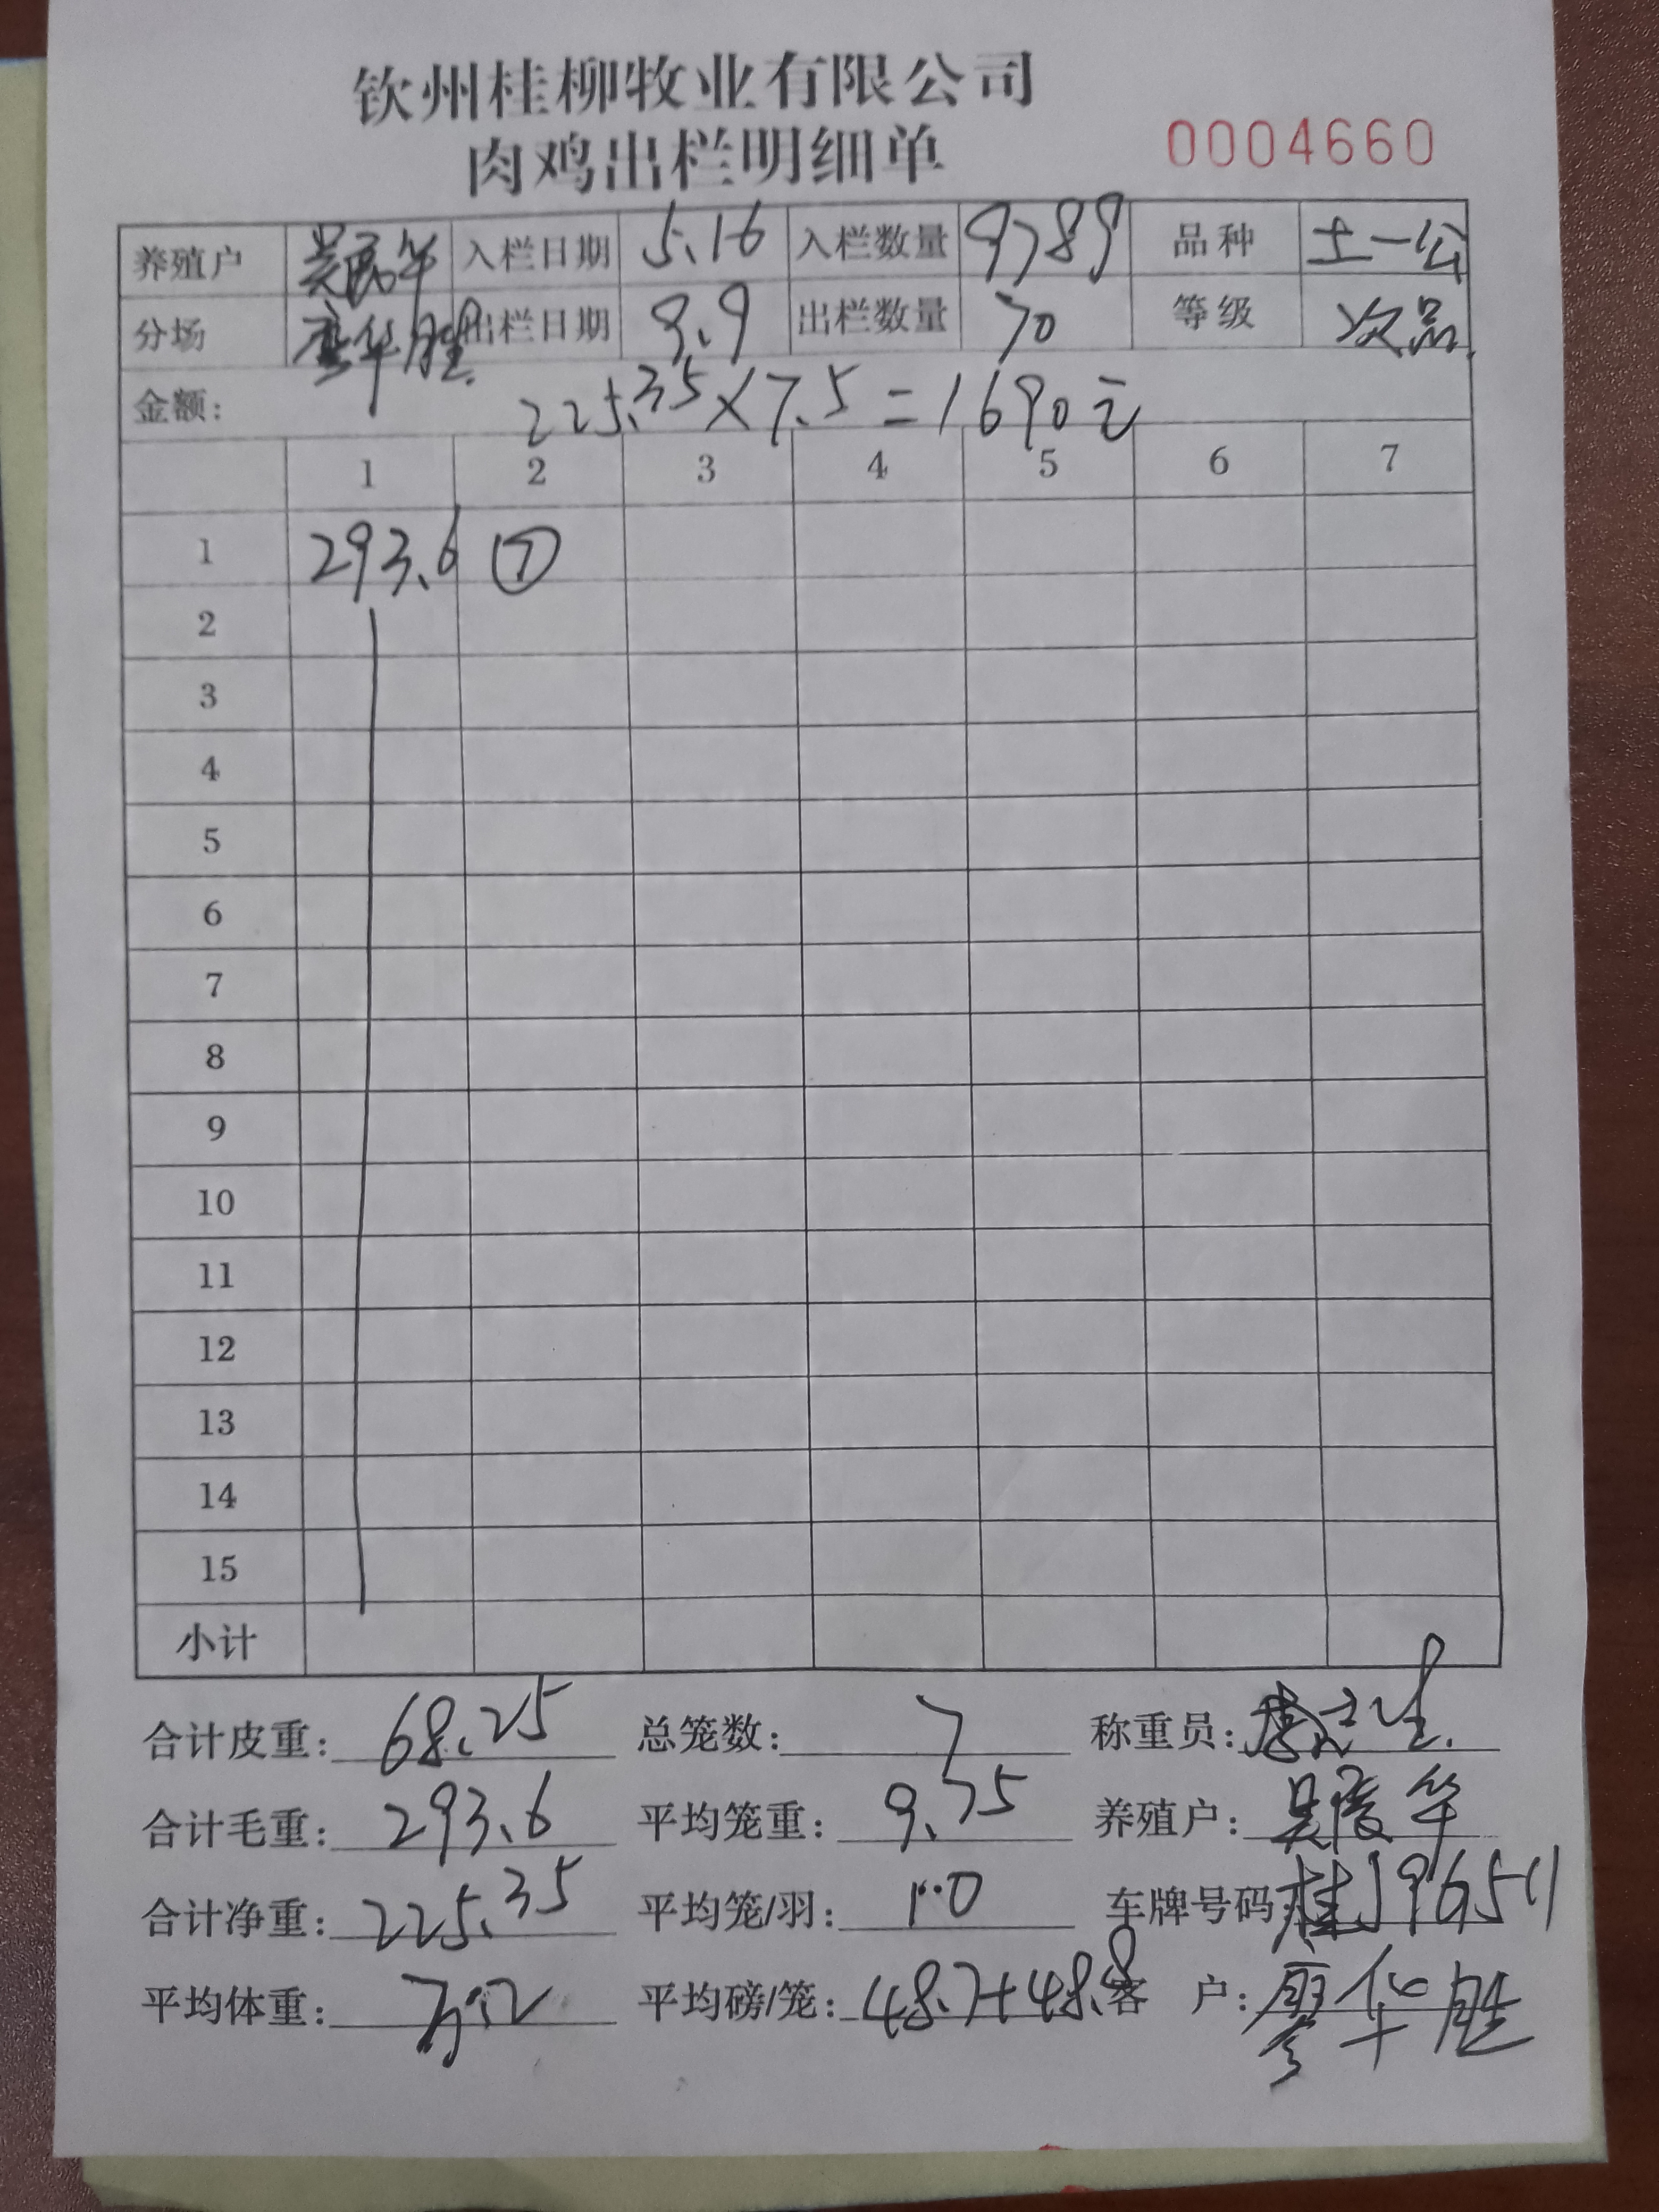 钦州桂柳牧业有限公司
肉鸡出栏明细单 0004660
养殖户 入栏日期 5.16 入栏数量 9789 品种 土一公
分场 华胜 出栏日期 9.9 出栏数量 70 等级 次品
金额: 225.35×7.5=1690元
1 2 3 4 5 6 7
1 293.6 ⑦
2
3
4
5
6
7
8
9
10
11
12
13
14
15
小计
合计皮重: 68.25 总笼数: 7 称重员:
合计毛重: 293.6 平均笼重: 9.75 养殖户: 吴 华
合计净重: 225.35 平均笼/羽: 10 车牌号码: 桂J96511
平均体重: 平均磅/笼: 48.7+48.8 客 户: 廖华胜